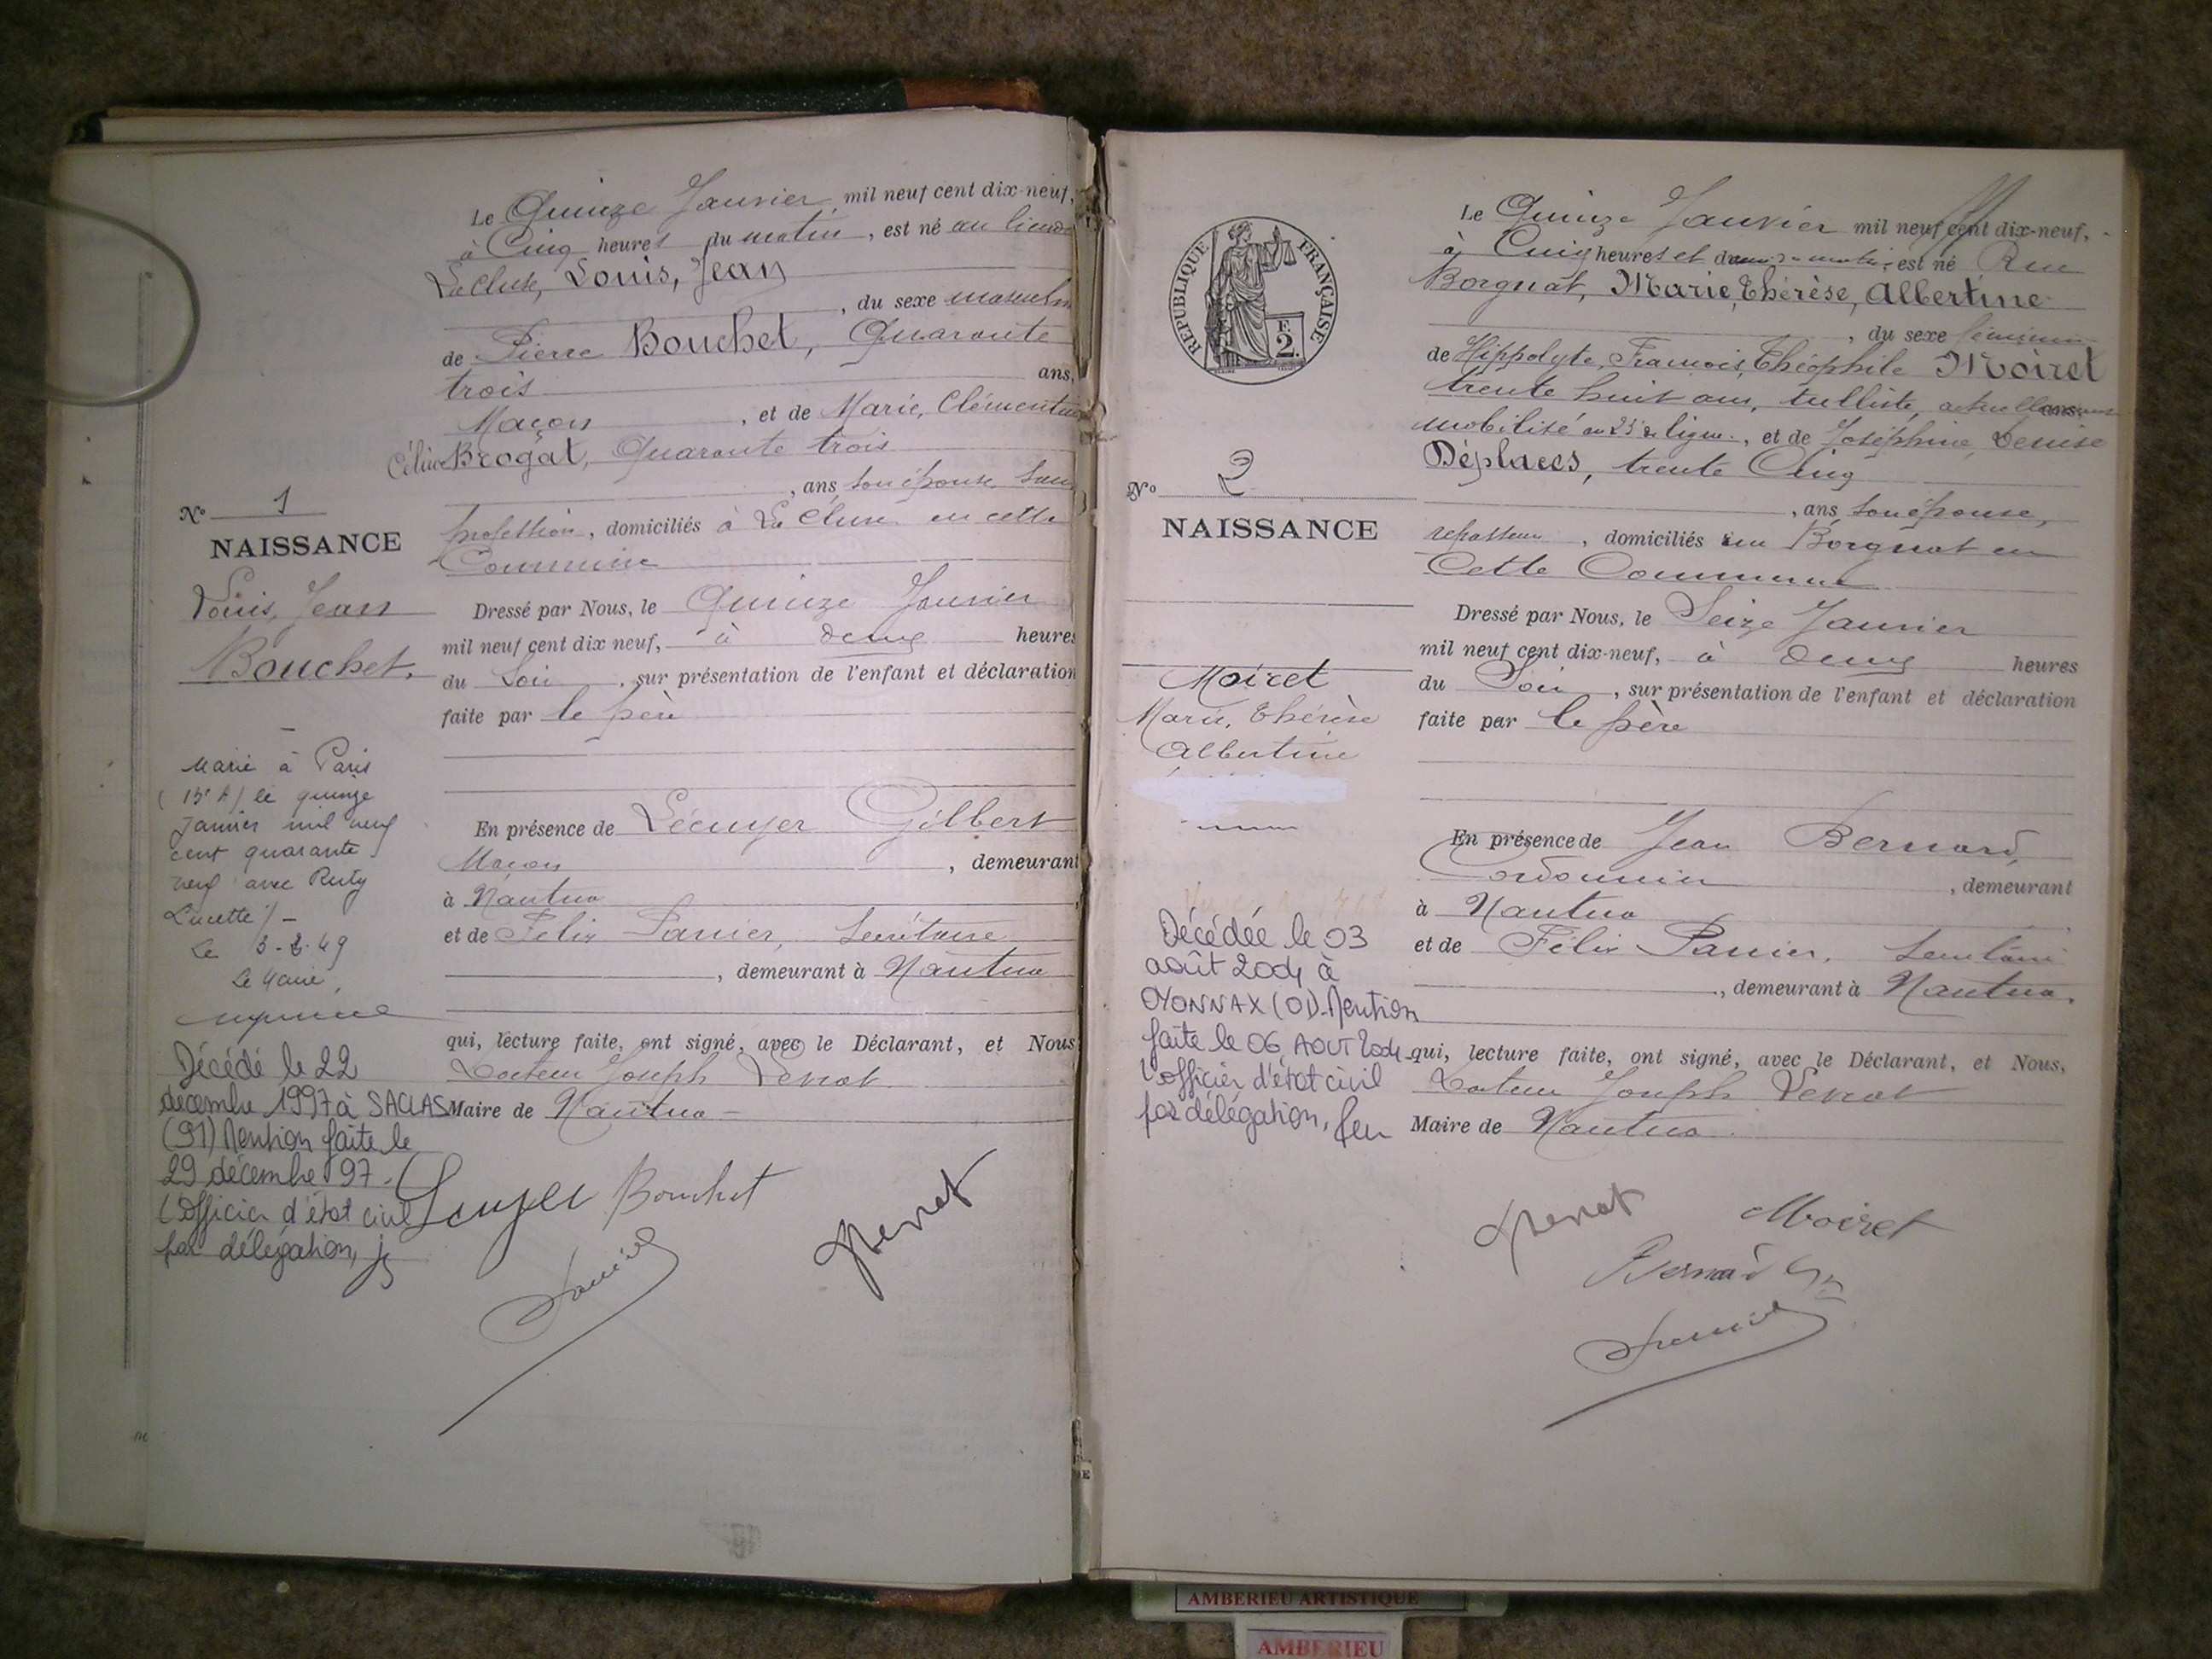 Le Quinze Janvier mil neuf cent dix-neuf,
à Cinq heures du matin, est né au lieu de
La Cluse, Louis, Jean
, du sexe masculin
de Pierre Bouchet, Quarante
trois ans,
Maçon, et de Marie, Clémentine
Céline Brogat, Quarante trois
, ans son épouse, sans
profession, domiciliés à La Cluse en cette
Commune
N° 1
NAISSANCE
Louis, Jean
Bouchet.
Dressé par Nous, le Quinze Janvier
mil neuf cent dix neuf, à deux heures
du Soir, sur présentation de l'enfant et déclaration
faite par le père
Marié à Paris
le quinze
Janvier mil neuf
cent quarante
neuf avec Ruty
Lucette /-
Le 3-2-49
Le Maire,
En présence de Lécuyer Gilbert
Maçon, demeurant
à Nantua
et de Félix Panier, Secrétaire
, demeurant à Nantua
qui, lecture faite, ont signé, avec le Déclarant, et Nous
Docteur Joseph
Maire de Nantua
Décédé le 22
décembre 1997 à SACLAS
(91) Mention faite le
29 décembre 97.
L'officier d'état civil
par délégation,
Bouchet
REPUBLIQUE FRANÇAISE
E.
2.
Le Quinze Janvier mil neuf cent dix-neuf,
à Cinq heures et demi du matin, est né Rue
Borgnat, Marie, Thérèse, Albertine
, du sexe féminin
de Hippolyte, François, Théophile Moiret
trente huit ans, tulliste, actuellement ans,
mobilisé au 23e de ligne, et de Joséphine, Denise
Déplaces, trente Cinq
, ans son épouse,
domiciliés Borgnat en
Cette Commune
N° 2
NAISSANCE
Moiret
Marie, Thérèse
Albertine
Dressé par Nous, le Seize Janvier
mil neuf cent dix-neuf, à deux heures
du Soir, sur présentation de l'enfant et déclaration
faite par le père
En présence de Jean Bernard,
Cordonnier, demeurant
à Nantua
et de Félix Panier, Secrétaire
, demeurant à Nantua.
Décédée le 03
août 2004 à
OYONNAX (01). Mention
faite le 06 AOUT 2004
L'officier d'état civil
par délégation,
qui, lecture faite, ont signé, avec le Déclarant, et Nous,
Docteur Joseph
Maire de Nantua
Moiret
Bernard
AMBERIEU ARTISTIQUE
AMBERIEU